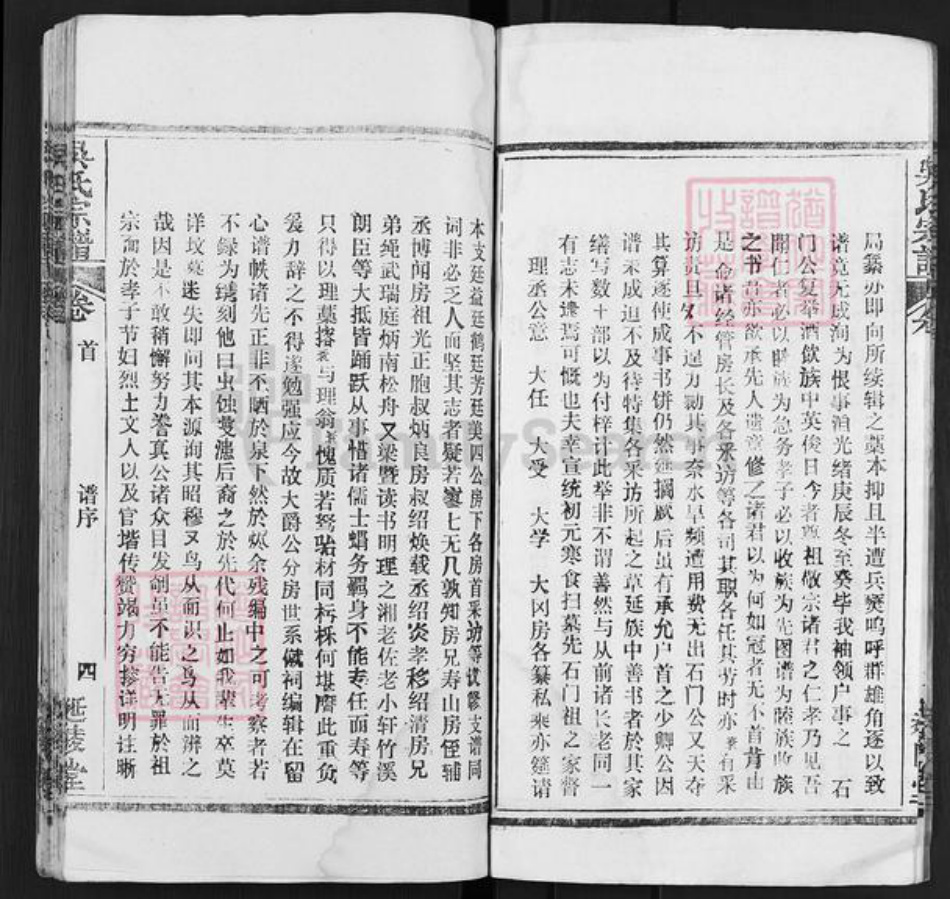 局纂亦即向所续辑之藁本抑且半遭兵燹呜呼群雄角逐以致
谱竟无成洵为恨事洎光绪庚辰冬至祭毕我袖领户事之 石
门公复举酒飲族中英俊曰今者尊祖敬宗诸君之仁孝乃见吾
闻仁者必以睦族为急务孝子必以收族为先图谱为睦族收族
之书吾亦欲承先人遗意修之诸君以为何如冠者无不首肯由
是 命诸经管房长及各采访等各司其职各任其劳时亦 有采
访 贵且 不遑力 其事奈水旱频遭用费无出石门公又夭夺
其算遂使成事书饼仍然延搁厥后虽有承允户首之少卿公因
谱未成迫不及待特集各采访所起之草延族中善书者於其家
缮写数十部以为付梓计此举非不谓善然与从前诸长老同一
有志未逮焉可慨也夫幸宣统初元寒食扫墓先石门祖之家督
理丞公意 大任 大受 大学 大冈房各纂私乘亦筵请
本支廷益廷鹤廷芳廷美四公房下各房首采访等议修支谱同
词非必乏人而坚其志者疑若寥七无几孰知房兄寿山房侄辅
丞博闻房祖光正胞叔炳良房叔绍焕载丞绍炎孝移绍清房兄
弟绳武瑞庭炳南松舟又梁暨读书明理之湘老佐老小轩竹溪
朗臣等大抵皆踊跃从事惜诸儒士蝟务羁身不能专任而寿等
只得以理墓 与理翁 愧质若驽骀材同朽株何堪膺此重负
爰力辞之不得遂勉强应今故大爵公分房世系 祠编辑在留
心谱帙诸先正非不晒於泉下然於烬余残编中之可考察者若
不録为琇刻他日虫蚀漫漶后裔之於先代何止如我辈生卒莫
详坟墓迷失即问其本源询其昭穆又鸟从而识之鸟从而辨之
哉因是不敢稍懈努力誊真公诸众目发剞虽不能告无罪於祖
宗而於孝子节妇烈士文人以及官堦传赞竭力穷搜详明注晰
吴氏宗谱
卷
首
谱序
四
延陵堂
吴氏宗谱